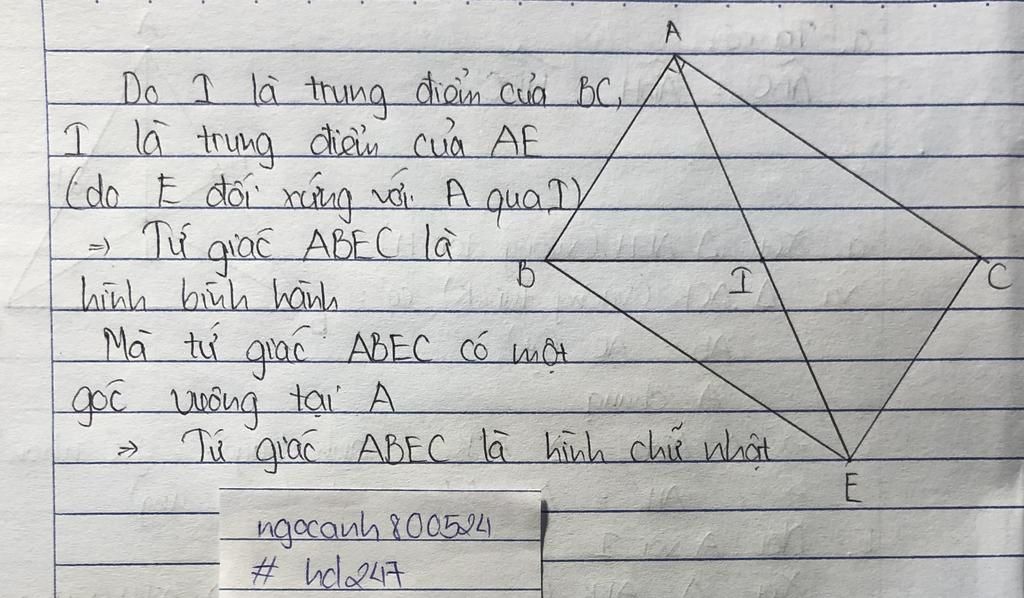 A
Do I là trung điểm của BC,
I là trung điểm của AE
(do E đối xứng với A qua I)
⇒ Tứ giác ABEC là
B
I
C
hình bình hành
Mà tứ giác ABEC có một
góc vuông tại A
⇒ Tứ giác ABEC là hình chữ nhật
E
ngocanh800524
# hd247